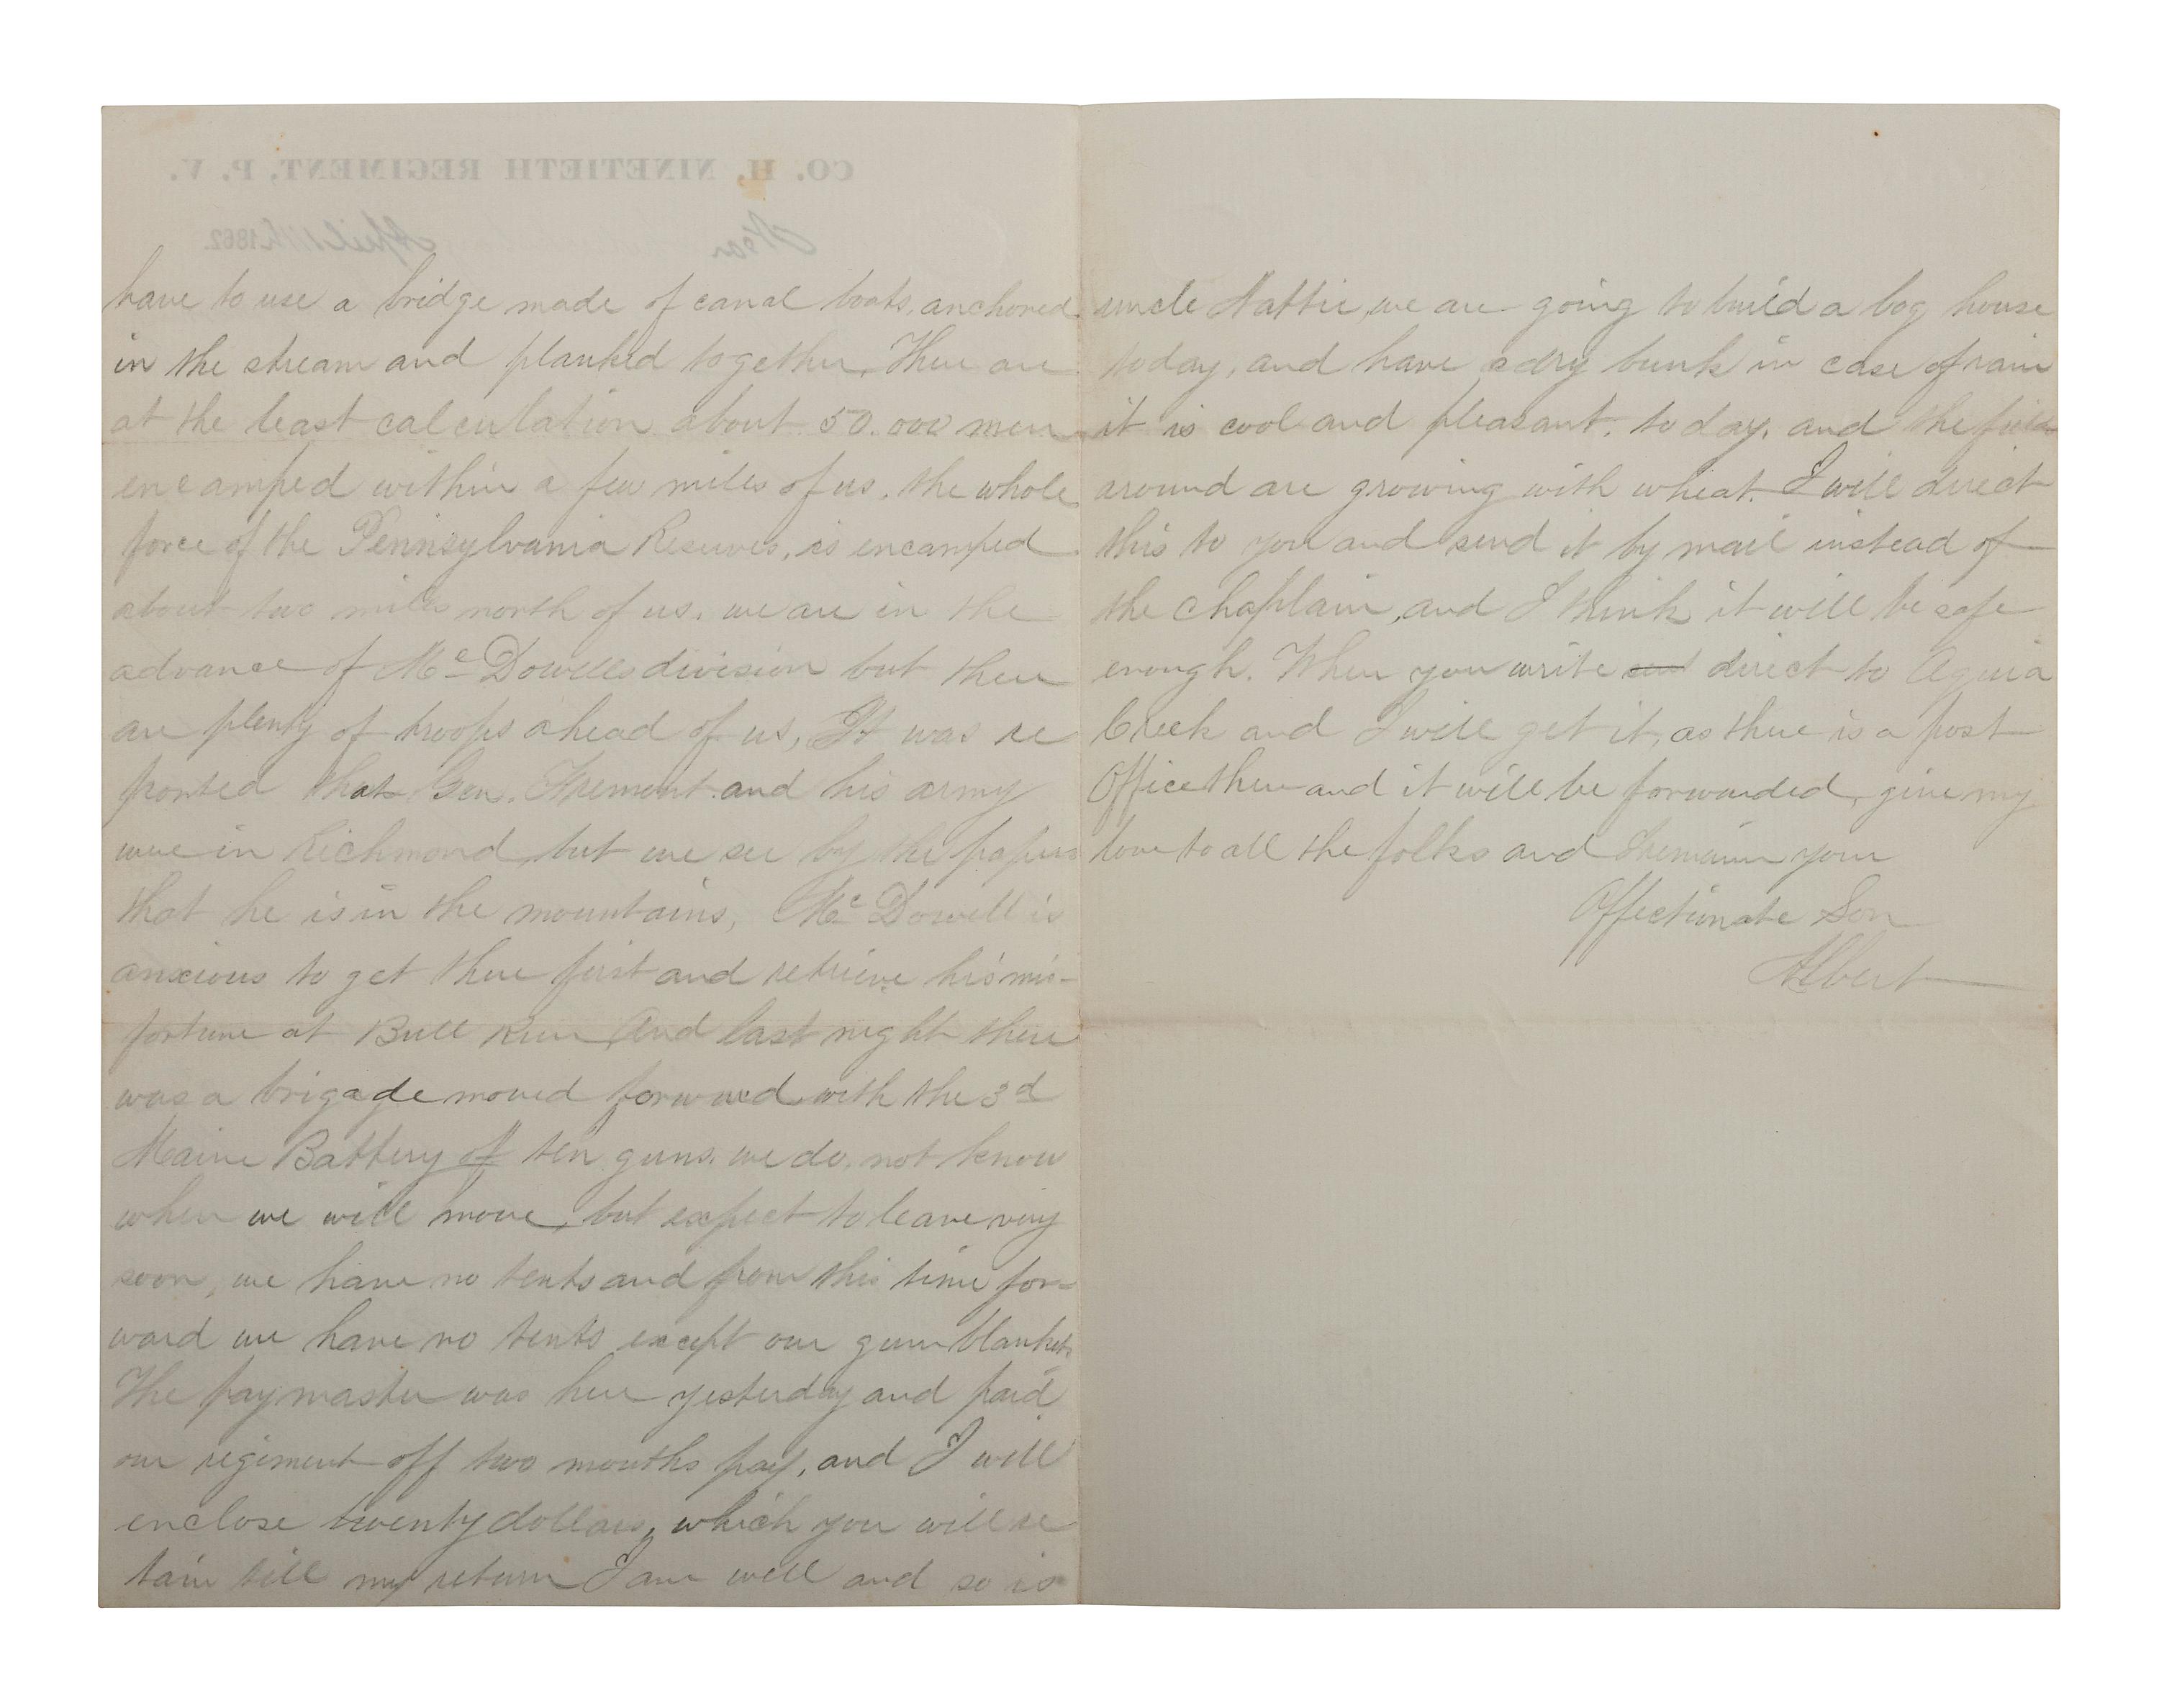 CO. H, NINETIETH REGIMENT, P. V.
Near April 1862.
have to use a bridge made of canal boats, anchored
in the stream and planked together, There are
at the least calculation about 50.000 men
encamped within a few miles of us. the whole
force of the Pennsylvania Reserves, is encamped
about two miles north of us. we are in the
advance of McDowells division but there
are plenty of troops ahead of us, It was re
ported that Gen. Fremont and his army
were in Richmond, but we see by the papers
that he is in the mountains, McDowell is
anxious to get there first and retrieve his mis-
fortune at Bull Run, And last night there
was a brigade moved forward with the 3d
Maine Battery of ten guns. we do, not know
when we will move, but expect to leave very
soon, we have no tents and from this time for=
ward we have no tents except our gum blankets
The paymaster was here yesterday and paid
our regiment off two months pay, and I will
enclose twenty dollars, which you will re
tain till my return I am well and so is
uncle Hattie, we are going to build a log house
today, and have a dry bunk in case of rain
it is cool and pleasant. today. and the fields
around are growing with wheat. I will direct
this to you and send it by mail instead of
the Chaplain, and I think it will be safe
enough. When you write direct to Aquia
Creek and I will get it, as there is a post
Office there and it will be forwarded, give my
love to all the folks and I remain your
Affectionate Son
Albert